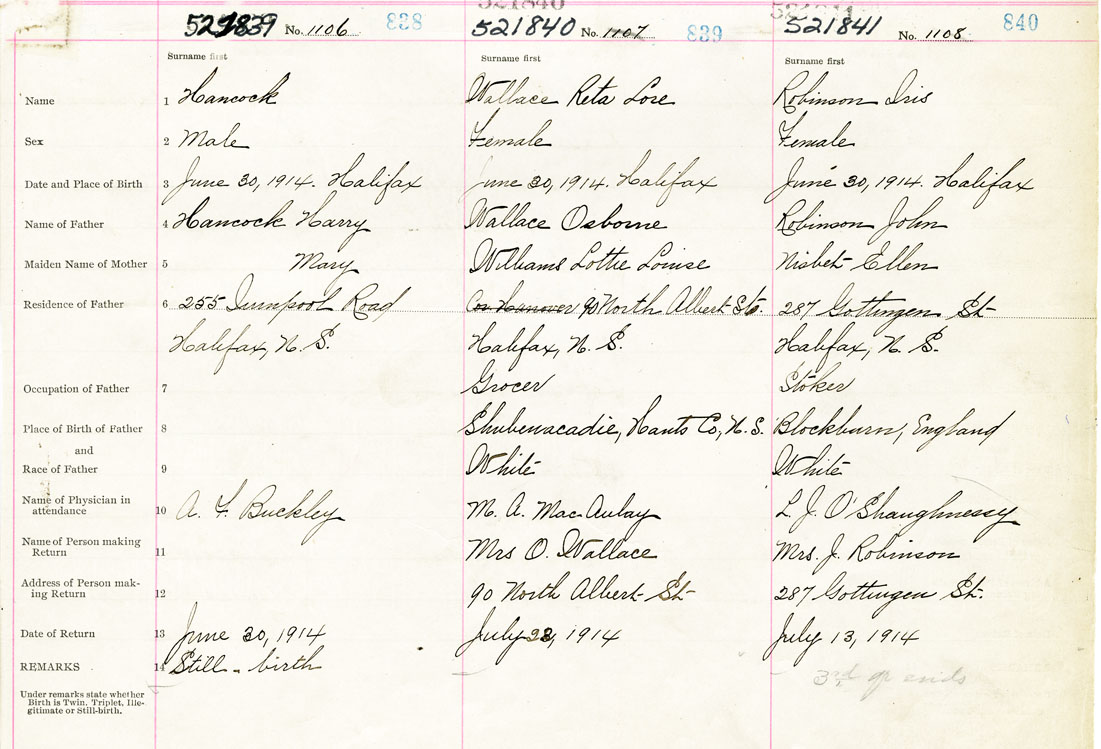 521839 No. 1106 838 521840 No. 1107 839 521841 No. 1108 840
Surname first Surname first Surname first
Name 1 Hancock Wallace Reta Lore Robinson Iris
Sex 2 Male Female Female
Date and Place of Birth 3 June 30, 1914. Halifax June 30, 1914. Halifax June 30, 1914. Halifax
Name of Father 4 Hancock Harry Wallace Osborne Robinson John
Maiden Name of Mother 5 Mary Williams Lottie Louise Nisbet Ellen
Residence of Father 6 255 Road 90 North Albert St. 287 Gottingen St
Halifax, N. S. Halifax, N. S. Halifax, N. S.
Occupation of Father 7 Grocer Stoker
Place of Birth of Father 8 Shubenacadie, Hants Co, N. S. Blockburn, England
and
Race of Father 9 White White
Name of Physician in
attendance 10 A. F. Buckley M. A. MacAulay L. J. O'Shaughnessy
Name of Person making
Return 11 Mrs O. Wallace Mrs. J. Robinson
Address of Person mak-
ing Return 12 90 North Albert St 287 Gottingen St.
Date of Return 13 June 30, 1914 July 23, 1914 July 13, 1914
REMARKS 14 Still - birth
3rd qr ends
Under remarks state whether
Birth is Twin, Triplet, Ille-
gitimate or Still-birth.